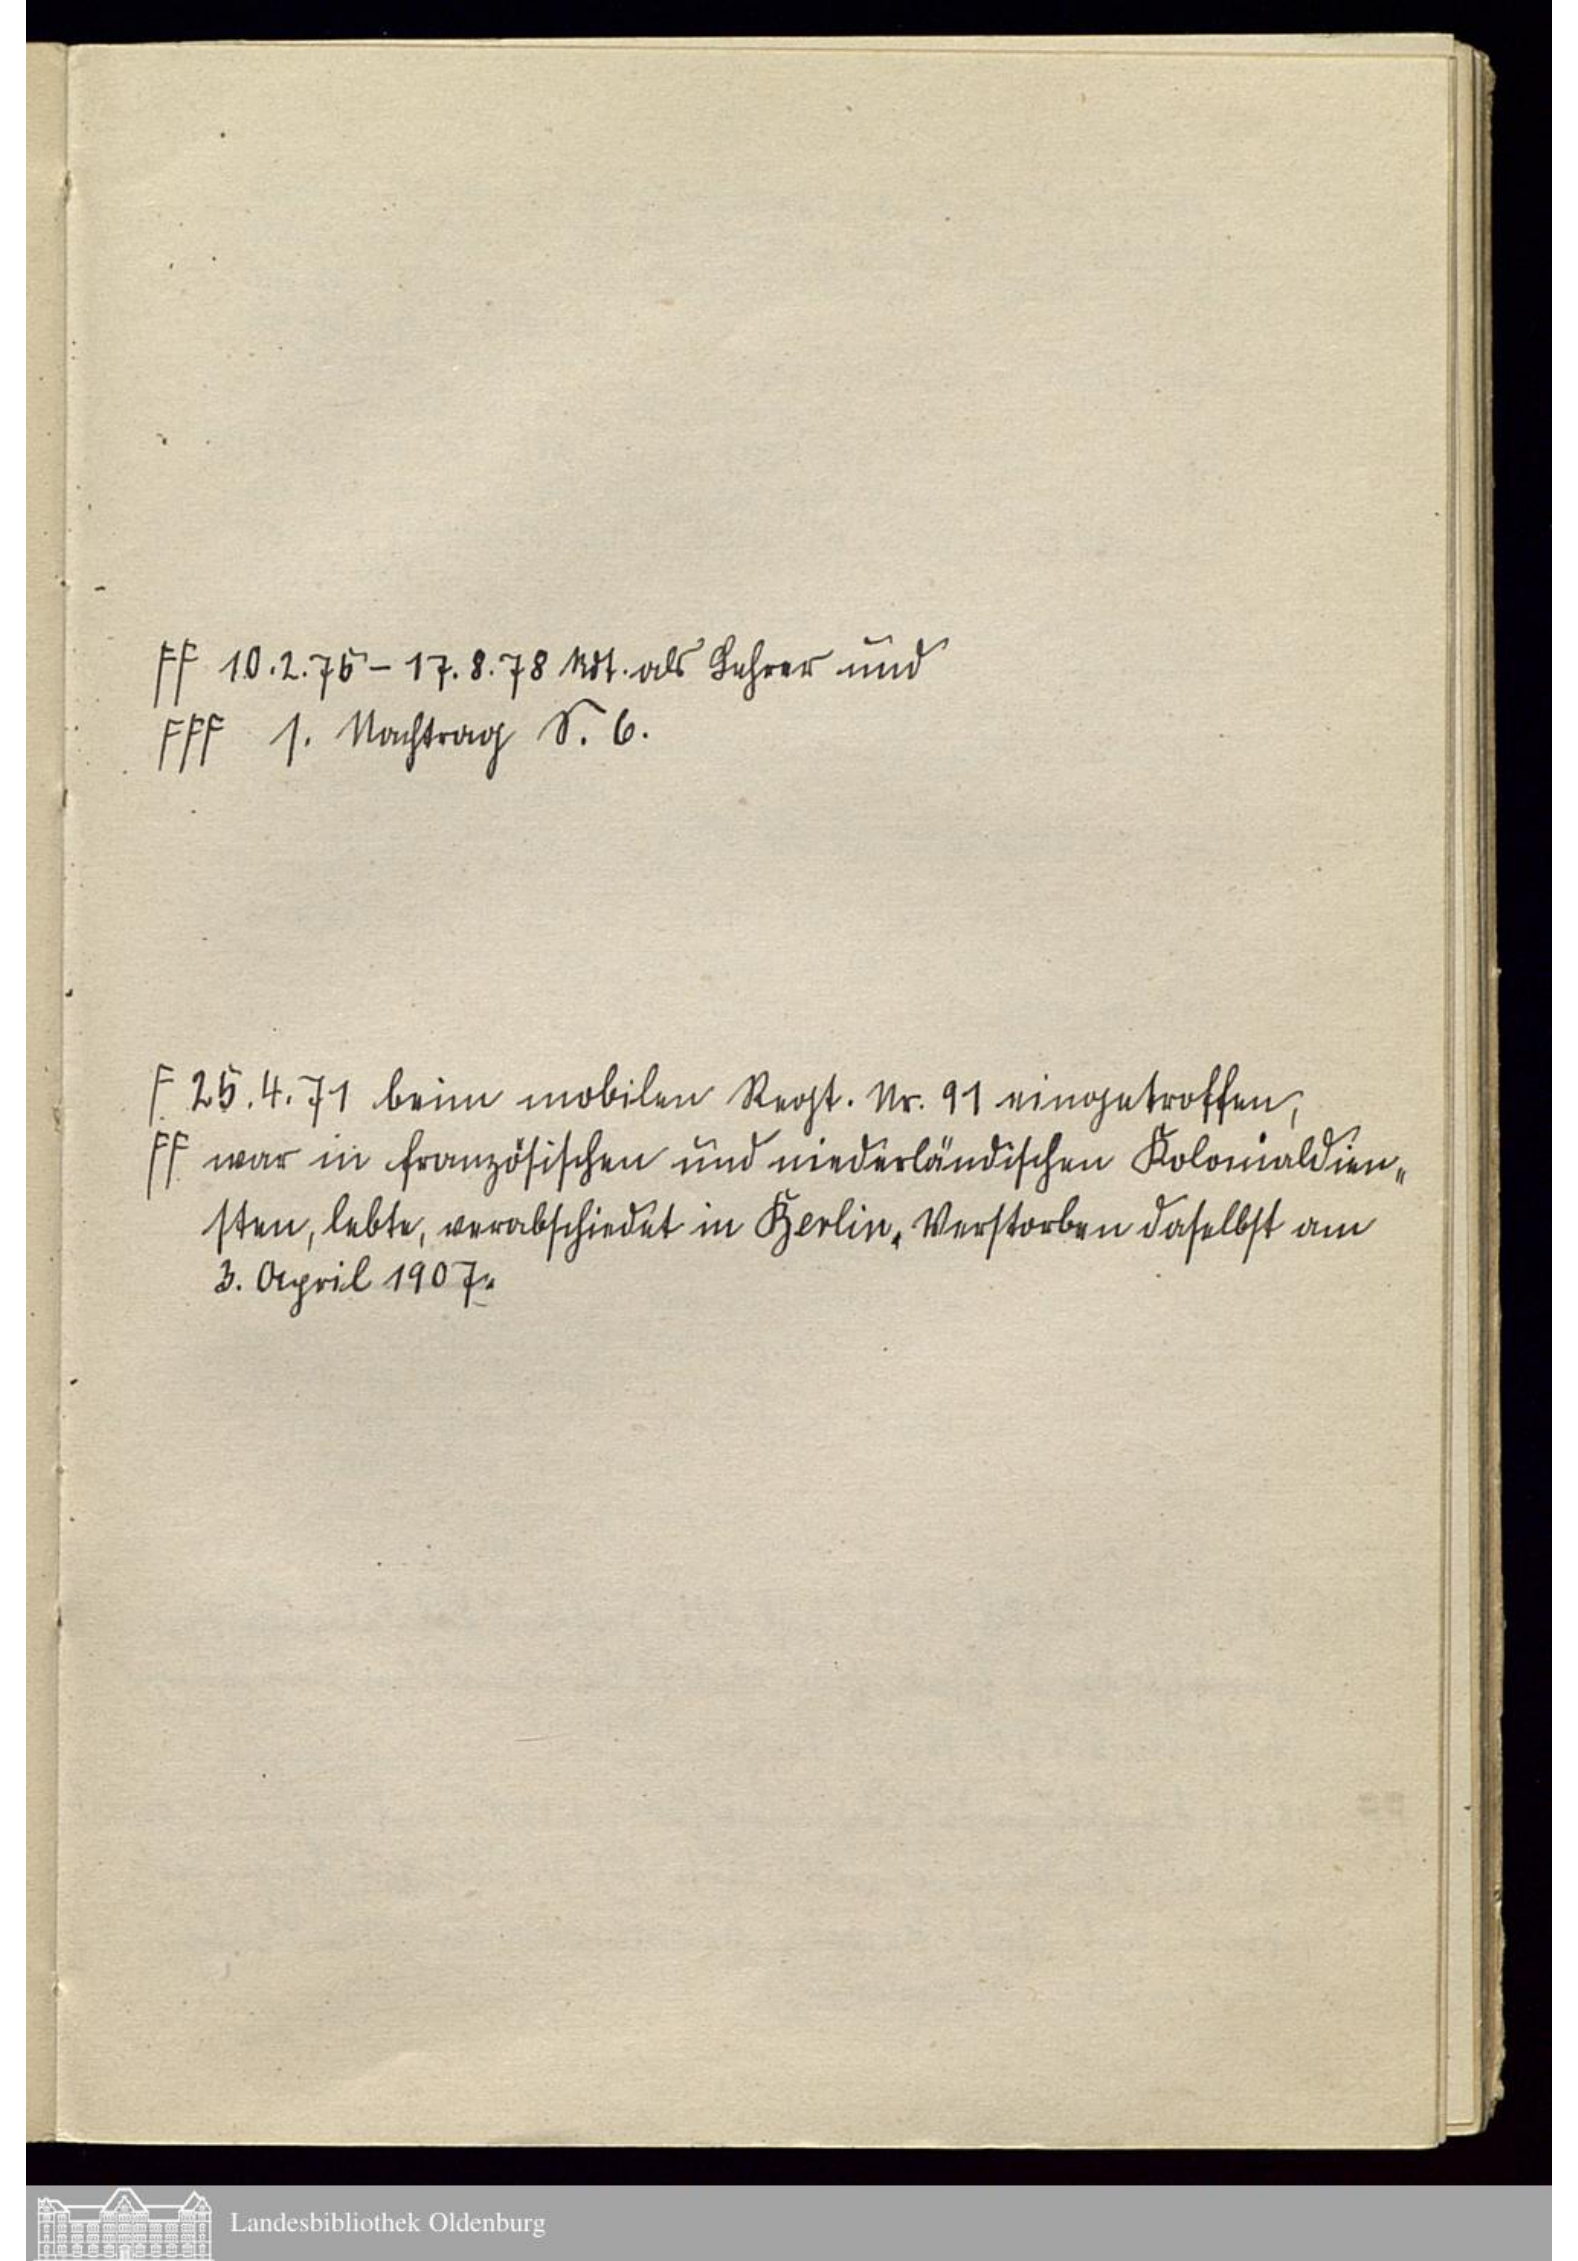 FF 10.2.75 – 17.8.78 Kdt. als Lehrer und
FFF 1. Nachtrag S. 6.
F 25.4.71 beim mobilen Regt. Nr. 91 eingetroffen,
FF war in französischen und niederländischen Kolonialdien„
sten, lebte, verabschiedet in Berlin. Verstorben daselbst am
3. April 1907.
Landesbibliothek Oldenburg